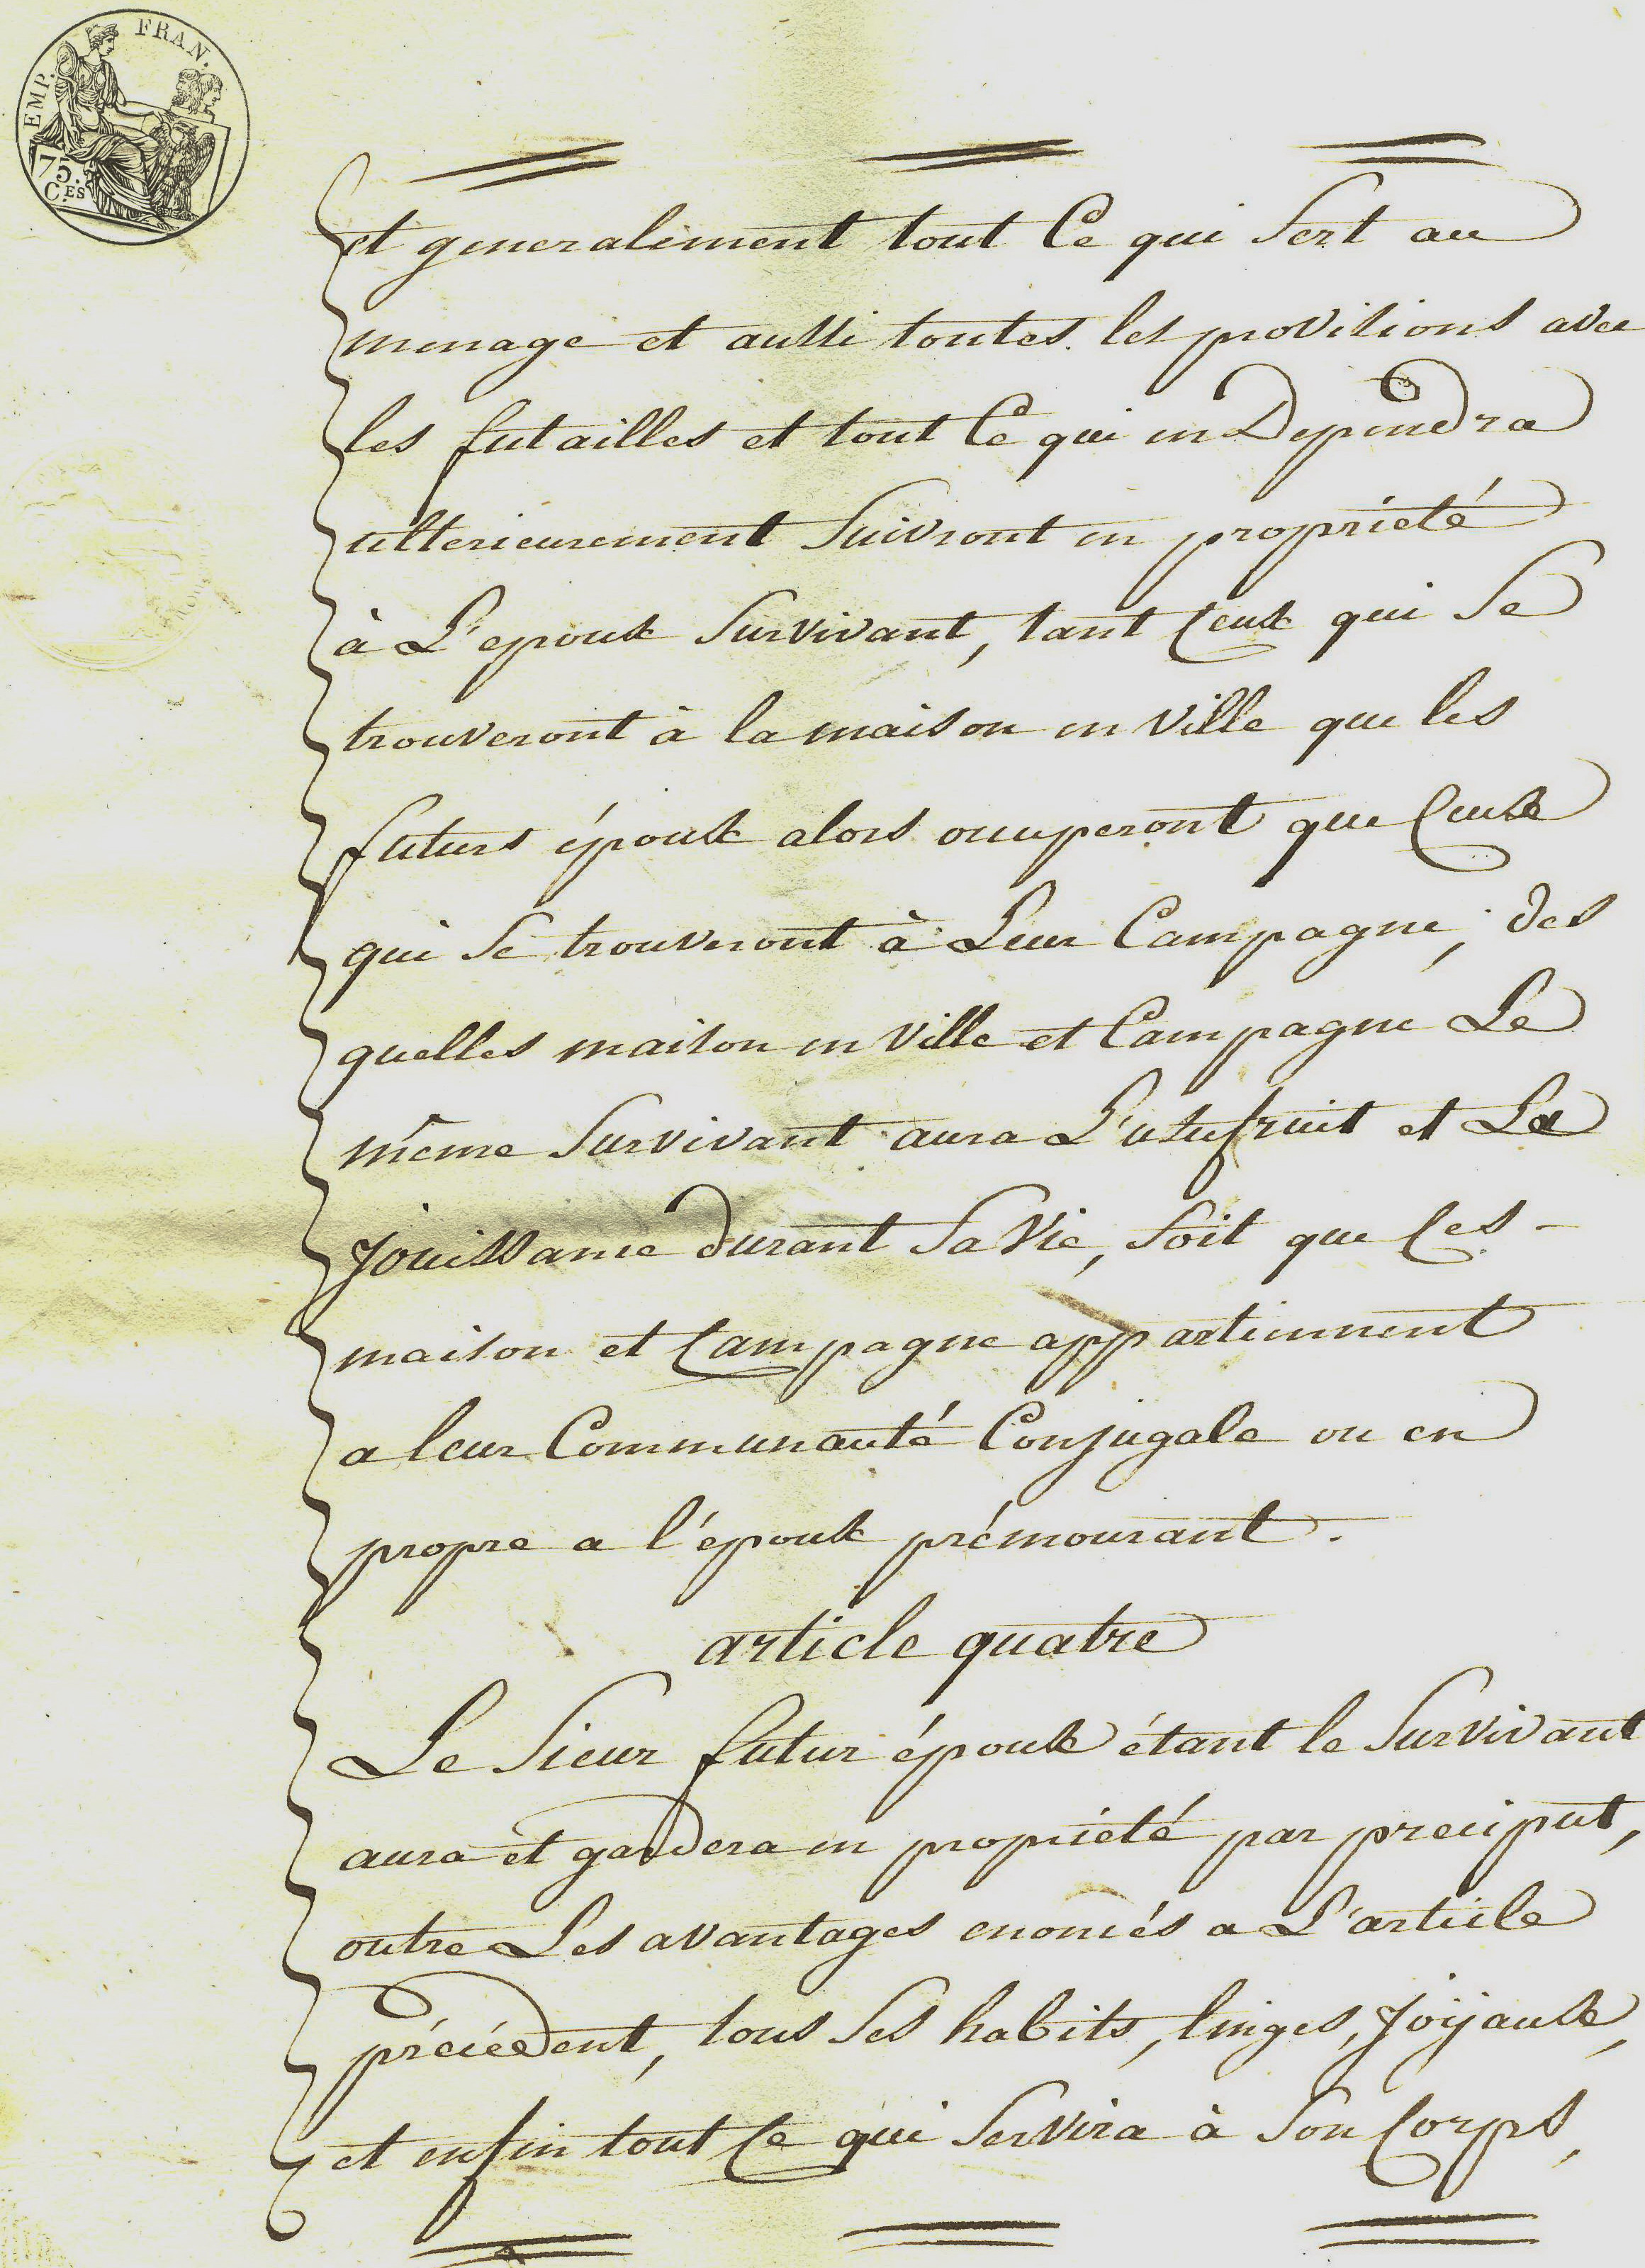 EMP. FRAN.
75.
C.ES
et generalement tout Ce qui Sert au
menage et aussi toutes les provisions avec
les futailles et tout Ce qui en Dependra
ulterieurement Suivront en propriété
à L'epoux Survivant, tant Ceux qui Se
trouveront à la maison en Ville que les
futurs époux alors occuperont que Ceux
qui Se trouveront à Leur Campagne, des
quelles maison en Ville et Campagne Le
même Survivant aura L'usufruit et La
Jouissance durant Sa Vie, Soit que Ces -
maison et Campagne appartiennent
a leur Communauté Conjugale ou en
propre a l'époux prémourant.
article quatre
Le Sieur futur époux étant le Survivant
aura et gardera en propriété par preciput,
outre Les avantages enoncés a L'article
précédent, tous Ses habits, linges, Joyaux,
et enfin tout Ce qui Servira à Son Corps,